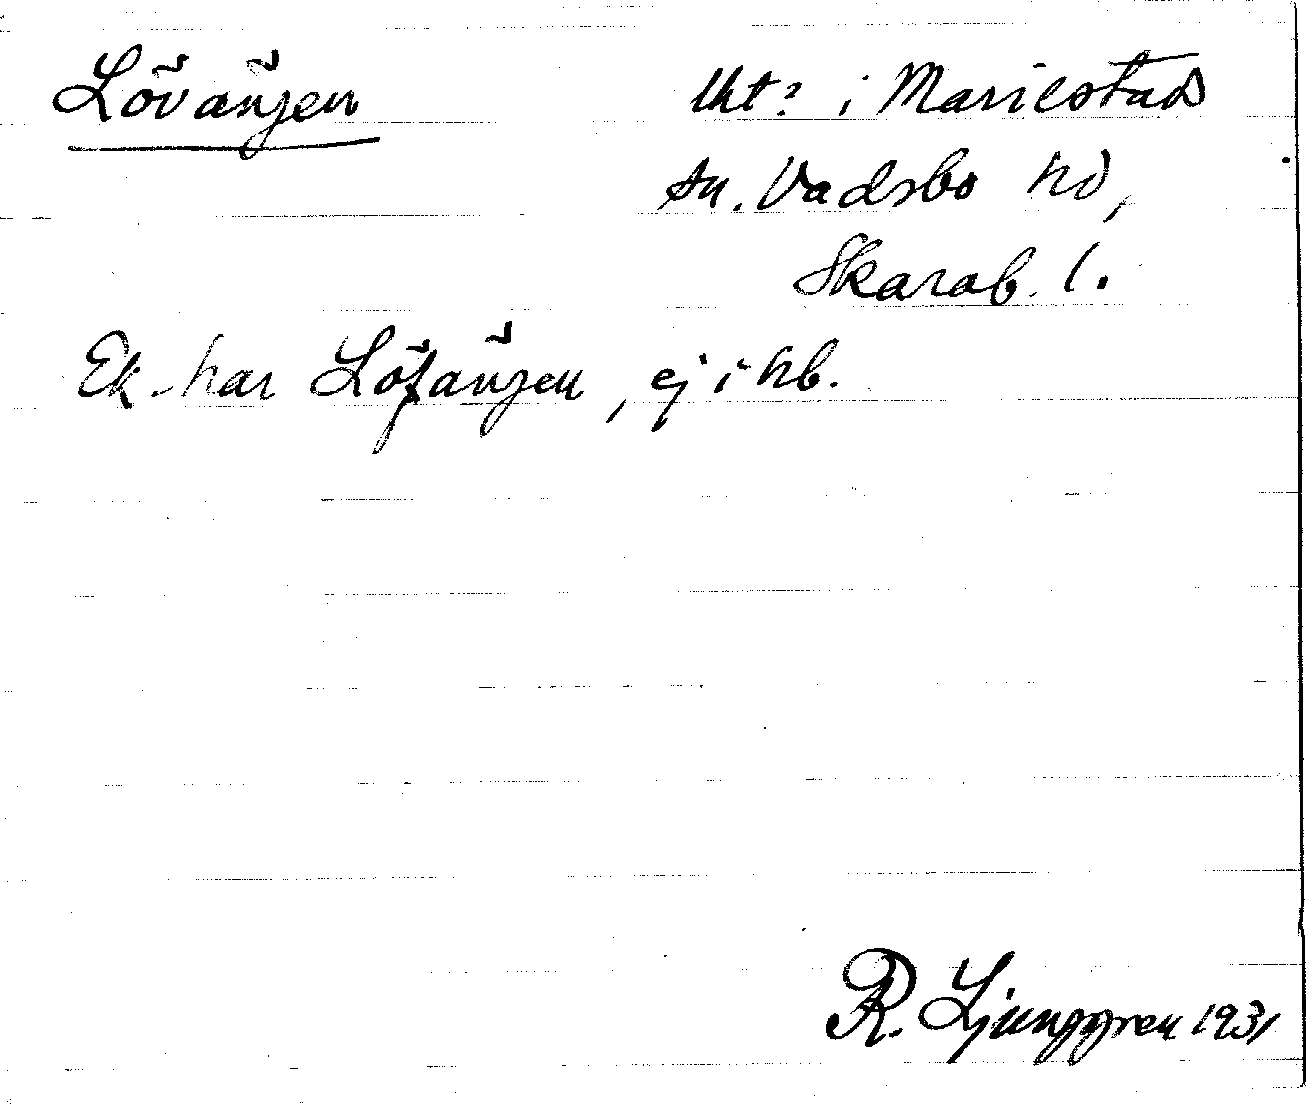 Lövängen
lht? i Mariestad
sn. Vadsbo hd,
Skarab. l.
Ek. har Löfängen, ej i hb.
R. Ljunggren 1931